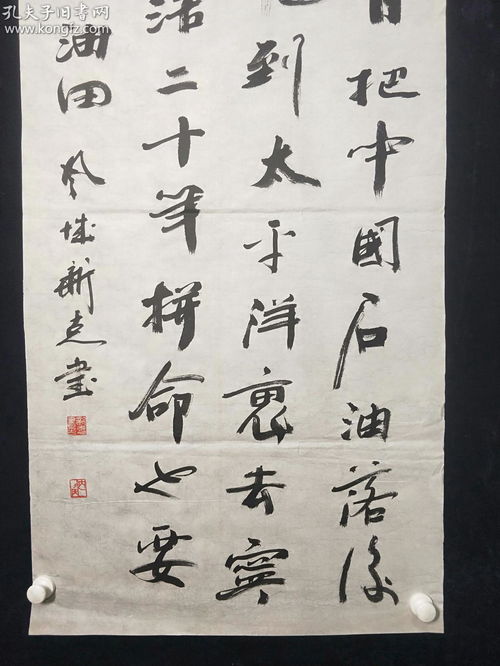 孔夫子旧书网
www.kongfz.com
把中國石油落後
到太平洋裏去寧
活二十年拼命也要
油田
城新克書